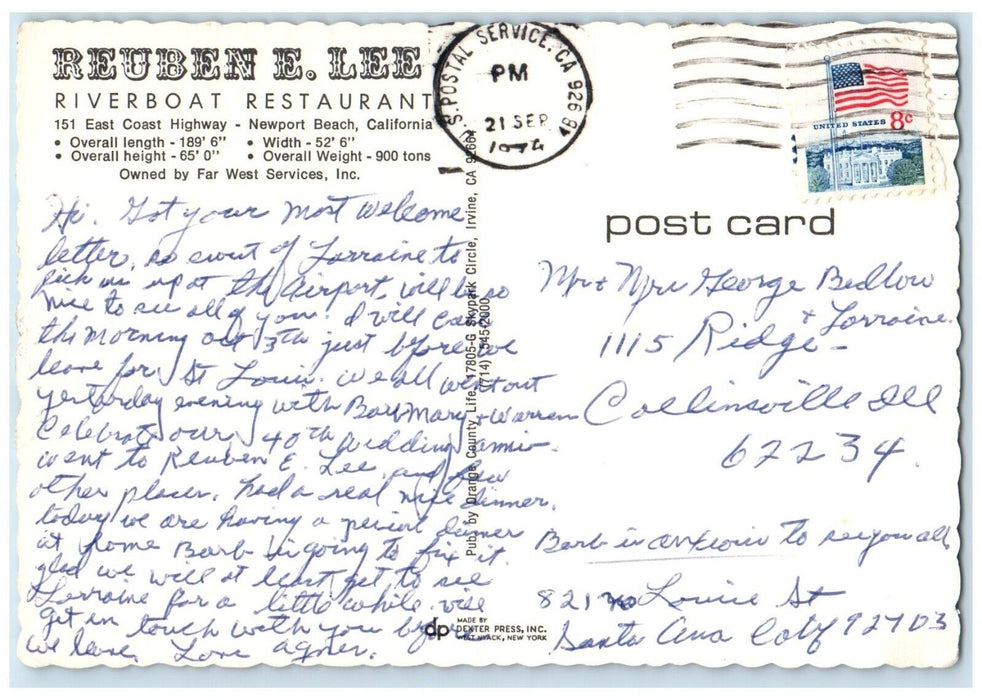 REUBEN E. LEE
RIVERBOAT RESTAURANT
151 East Coast Highway - Newport Beach, California
• Overall length - 189' 6" • Width - 52' 6"
• Overall height - 65' 0" • Overall Weight - 900 tons
Owned by Far West Services, Inc.
U.S. POSTAL SERVICE, CA 926
PM
21 SEP
1974
UNITED STATES 8c
post card
Hi. Got your most welcome
letter, so sweet of Lorraine to
pick us up at the Airport, will be so
nice to see all of you. I will call
the morning oct 13th just before we
leave for St Louis. we all went out
yesterday evening with Barb Mary + Warren
Celebrate our 40th wedding anniv.
went to Reuben E. Lee and few
other places. had a real nice dinner.
today we are having a dinner
at home Barb is going to fix it.
glad we will at least get to see
Lorraine for a little while. will
get in touch with you before
we leave. Love Agnes.
Pub. by Orange County Life, 17805-G Skypark Circle, Irvine, CA 92664
(714) 545-2000
MADE BY
dp DEXTER PRESS, INC.
WEST NYACK, NEW YORK
Mr + Mrs George Bedlow
+ Lorraine.
1115 Ridge -
Collinsville Ill
62234.
Barb is anxious to see you all
821 no Louise St
Santa Ana Calif 92703